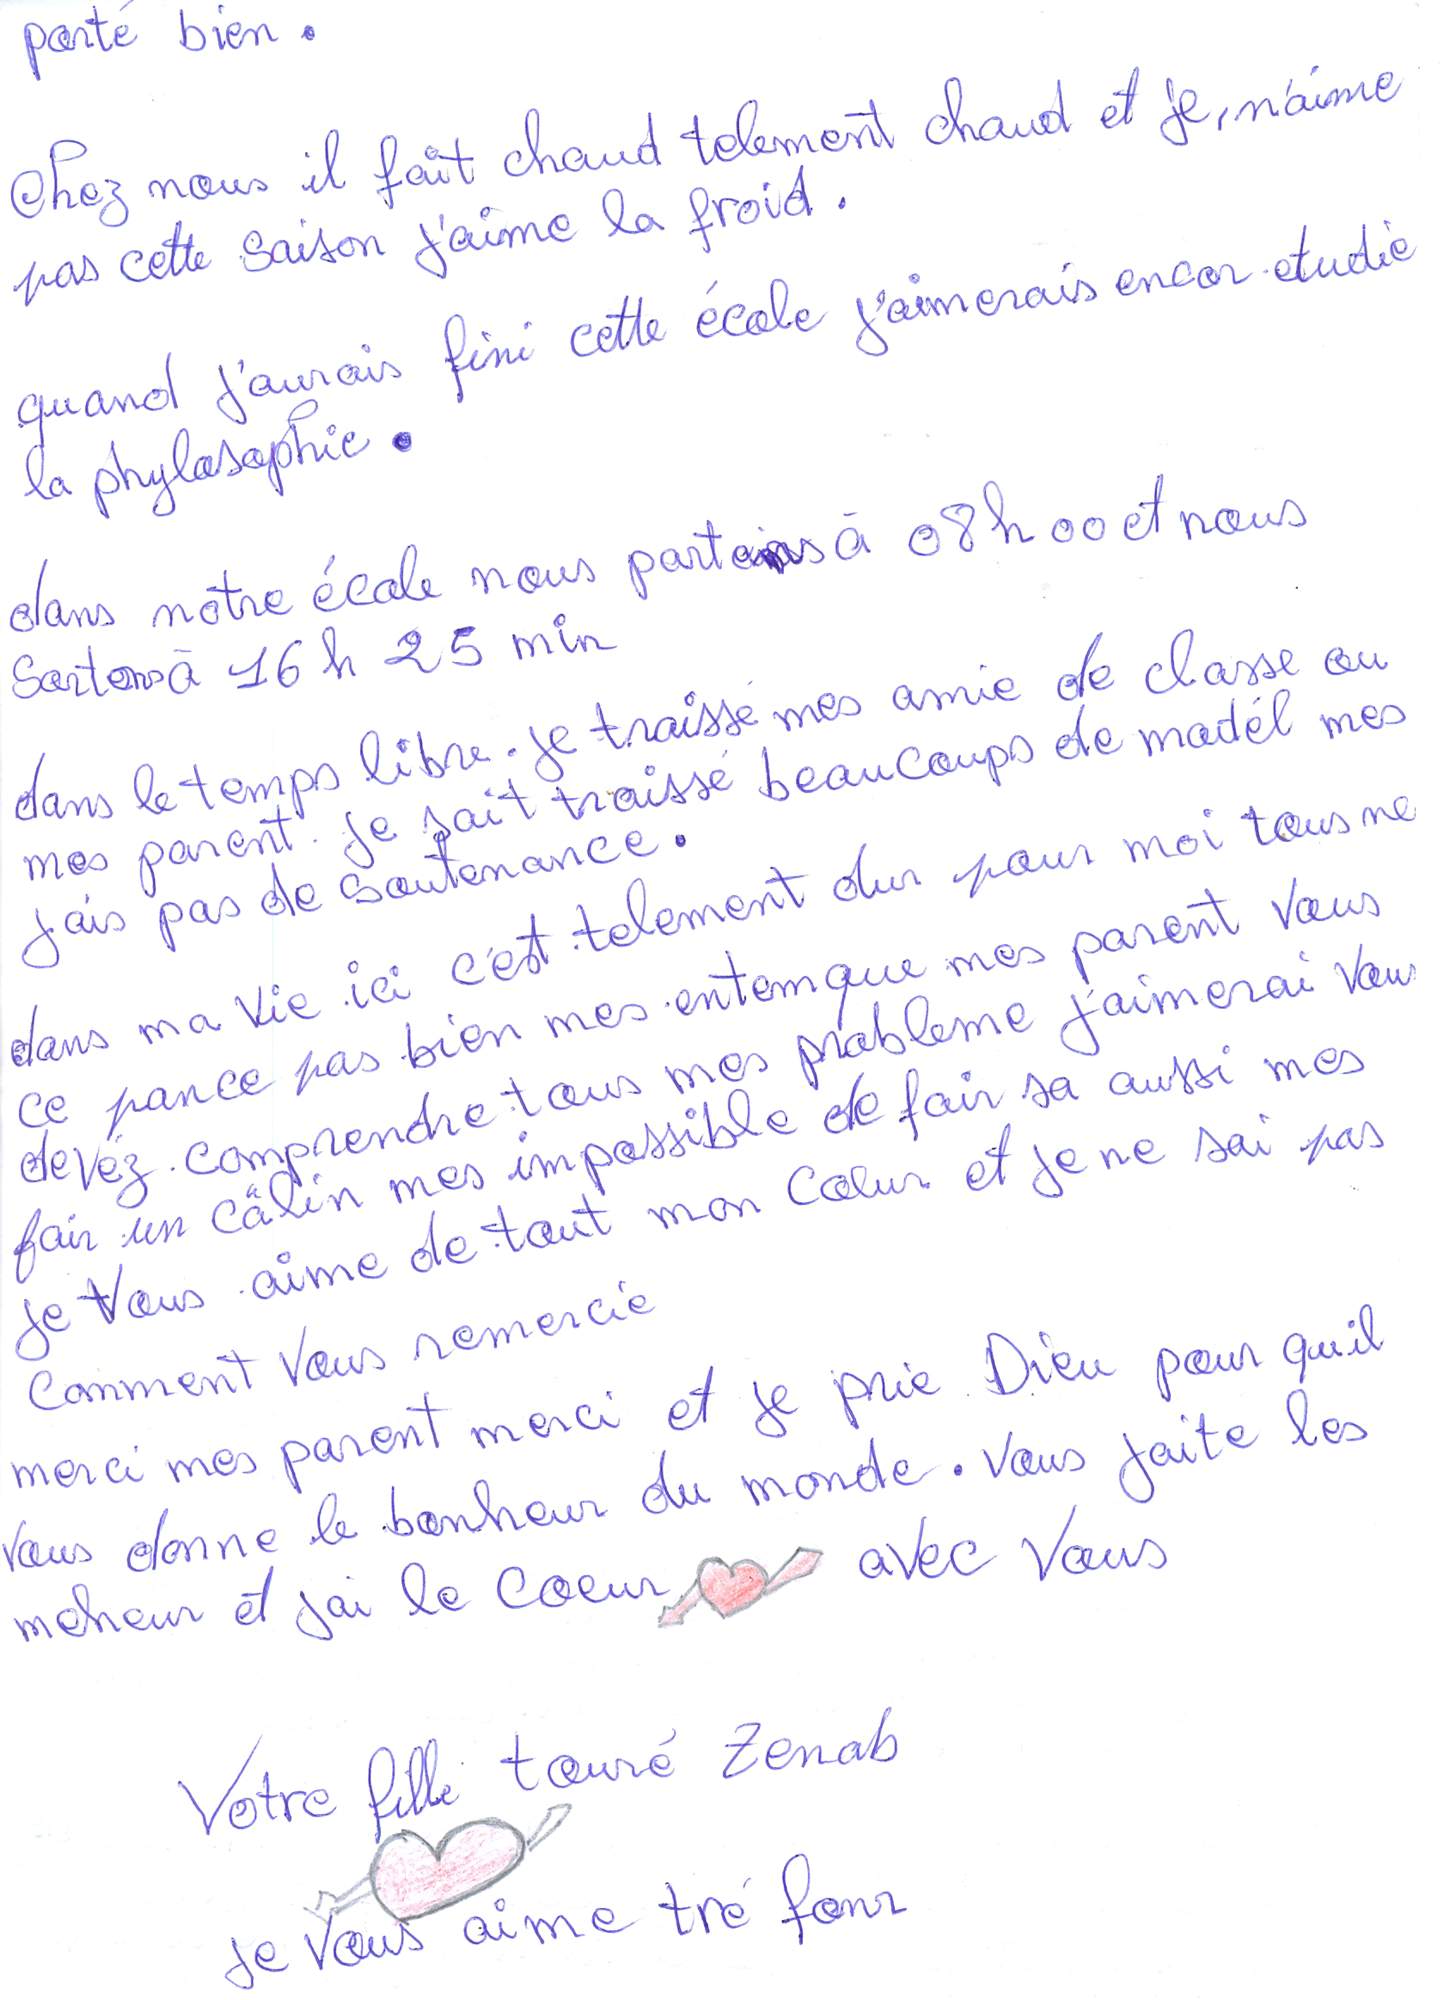 porté bien.
Chez nous il fait chaud telement chaud et je, n'aime
pas cette saison j'aime la froid.
quand j'aurais fini cette école j'aimerais encor etudie
la phylosophie.
dans notre école nous partons à 08h 00 et nous
Sortons à 16 h 25 min
dans le temps libre. je traissé mes amie de classe ou
mes parent. je sait traissé beaucoups de modél mes
jais pas de soutenance.
dans ma vie ici c'est telement dur pour moi tous ne
ce pance pas bien mes entemque mes parent vous
devez comprendre tous mes probleme j'aimerai vous
fair un câlin mes impossible de fair sa aussi mes
je vous aime de tout mon cœur et je ne sai pas
comment vous remercie
merci mes parent merci et je prie Dieu pour qu'il
vous donne le bonheur du monde. vous faite les
meheur et j'ai le coeur avec vous
Votre fille touré Zenab
je vous aime tré fonr